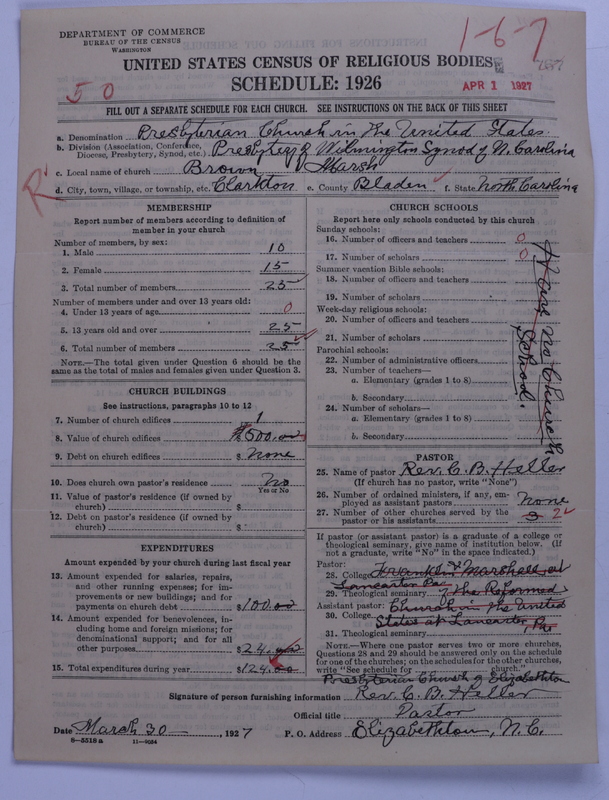 DEPARTMENT OF COMMERCE
BUREAU OF THE CENSUS
WASHINGTON
1-6-7
UNITED STATES CENSUS OF RELIGIOUS BODIES
SCHEDULE: 1926
50
APR 1 1927
FILL OUT A SEPARATE SCHEDULE FOR EACH CHURCH. SEE INSTRUCTIONS ON THE BACK OF THIS SHEET
a. Denomination Presbyterian Church in The United States
b. Division (Association, Conference, Diocese, Presbytery, Synod, etc.) Presbytery of Wilmington Synod of N. Carolina
c. Local name of church Brown Marsh
R
d. City, town, village, or township, etc. Clarkton e. County Bladen f. State North Carolina
MEMBERSHIP
Report number of members according to definition of
member in your church
Number of members, by sex:
1. Male 10
2. Female 15
3. Total number of members 25
Number of members under and over 13 years old:
4. Under 13 years of age 0
5. 13 years old and over 25
6. Total number of members 25
NOTE.—The total given under Question 6 should be the
same as the total of males and females given under Question 3.
CHURCH BUILDINGS
See instructions, paragraphs 10 to 12
7. Number of church edifices 1
8. Value of church edifices $ 500.00
9. Debt on church edifices $ None
10. Does church own pastor's residence No
Yes or No
11. Value of pastor's residence (if owned by
church) $
12. Debt on pastor's residence (if owned by
church) $
EXPENDITURES
Amount expended by your church during last fiscal year
13. Amount expended for salaries, repairs,
and other running expenses; for im-
provements or new buildings; and for
payments on church debt $100.00
14. Amount expended for benevolences, in-
cluding home and foreign missions; for
denominational support; and for all
other purposes $24.00
15. Total expenditures during year $124.00
CHURCH SCHOOLS
Report here only schools conducted by this church
Sunday schools:
16. Number of officers and teachers 0
17. Number of scholars 0
Summer vacation Bible schools:
18. Number of officers and teachers
19. Number of scholars
Week-day religious schools:
20. Number of officers and teachers
21. Number of scholars
Parochial schools:
22. Number of administrative officers
23. Number of teachers—
a. Elementary (grades 1 to 8)
b. Secondary
24. Number of scholars—
a. Elementary (grades 1 to 8)
b. Secondary
Have no Church
School.
PASTOR
25. Name of pastor Rev. C. B. Heller
(If church has no pastor, write "None")
26. Number of ordained ministers, if any, em-
ployed as assistant pastors None
27. Number of other churches served by the
pastor or his assistants 3 2
If pastor (or assistant pastor) is a graduate of a college or
theological seminary, give name of institution below. (If
not a graduate, write "No" in the space indicated.)
Pastor:
28. College Franklin & Marshall at
Lancaster Pa
29. Theological seminary of The Reformed
Assistant pastor: Church in The United
30. College States at Lancaster, Pa
31. Theological seminary
NOTE.—Where one pastor serves two or more churches,
Questions 28 and 29 should be answered only on the schedule
for one of the churches; on the schedules for the other churches,
write "See schedule for church."
Presbyterian Church of Elizabethtown
Signature of person furnishing information Rev. C. B. Heller
Official title Pastor
Date March 30, 1927 P. O. Address Elizabethtown, N.C.
8—5518a 11—9034